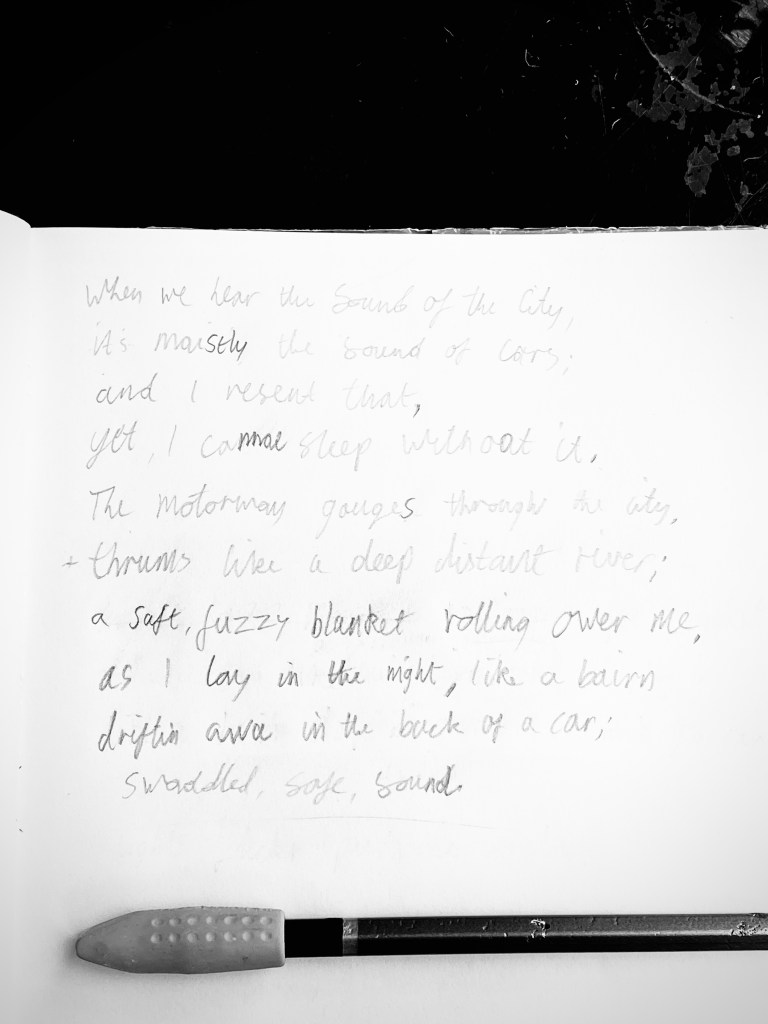 When we hear the sound of the city,
it's maistly the sound of cars;
and I resent that,
yet, I cannae sleep without it.
The motorway gouges through the city,
+ thrums like a deep distant river;
a saft, fuzzy blanket rolling ower me,
as I lay in the night, like a bairn
driftin awa in the back of a car;
swaddled, safe, sound.